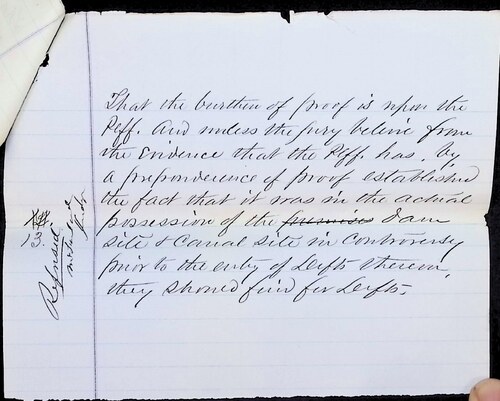 That the burthen of proof is upon the
Plff. And unless the jury believe from
the Evidence that the Plff. has, by
a preponderence of proof established
the fact that it was in the actual
possession of the premises Dam
site & Canal site in controversy
prior to the entry of Defts thereon,
they should find for Defts.
Refused